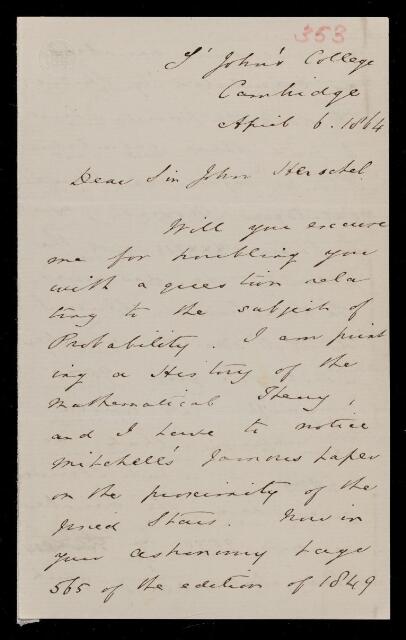 353
St John's College
Cambridge
April 6. 1864
Dear Sir John Herschel.
Will you excuse
me for troubling you
with a question rela
ting to the subject of
Probability. I am print
ing a History of the
Mathematical Theory,
and I have to notice
Mitchell's famous paper
on the proximity of the
fixed Stars. Now in
your astronomy page
565 of the edition of 1849